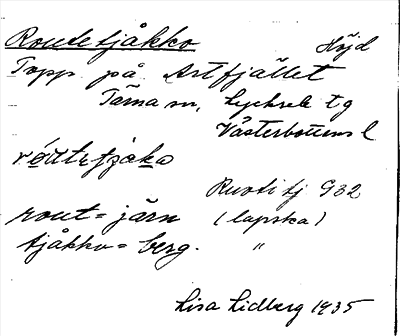 Routetjåkko Höjd
Topp på Artfjället
Tärna sn, Lycksele tg
Västerbottens l
Ruoti tj G32
rout = järn (lapska)
tjåkko = berg. "
Lisa Lidberg 1935